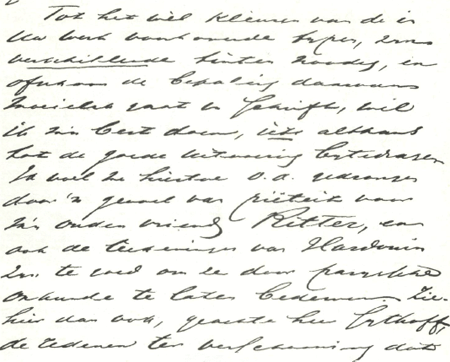 Tot het wel kleuren van de in
Uw werk voorkomende typen, zijn
verschillende tinten noodig, en
ofschoon de bepaling daarvan
moeielijk gaat in schrift, wil
ik m'n best doen, iets althans
tot de goede uitvoering bij te dragen
Ik voel me hiertoe o.a. gedrongen
door 'n gevoel van piëteit voor
m'n ouden vriend Ritter, en
ook de teekeningen van Hardouin
zijn te goed om ze door
onkunde te laten bederven. Zie-
hier dan ook, geachte heer
de redenen ter verschooning dat